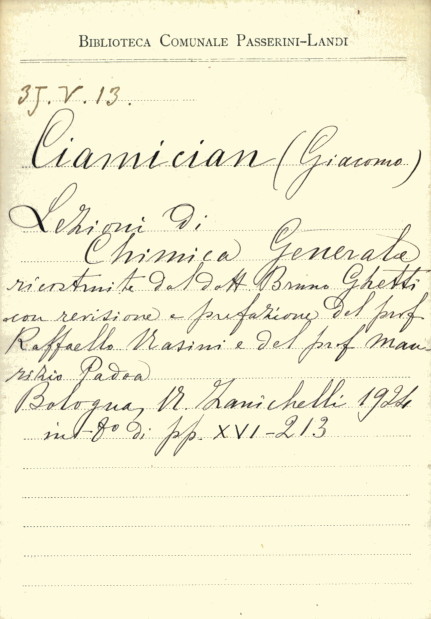 BIBLIOTECA COMUNALE PASSERINI-LANDI
3J.V.13.
Ciamician (Giacomo)
Lezioni di
Chimica Generale
ricostruite dal dott Bruno Ghetti
con revisione e prefazione del prof
Raffaello Nasini e del prof Mau-
rizio Padoa
Bologna, N. Zanichelli 1924
in-8º di pp. XVI-213